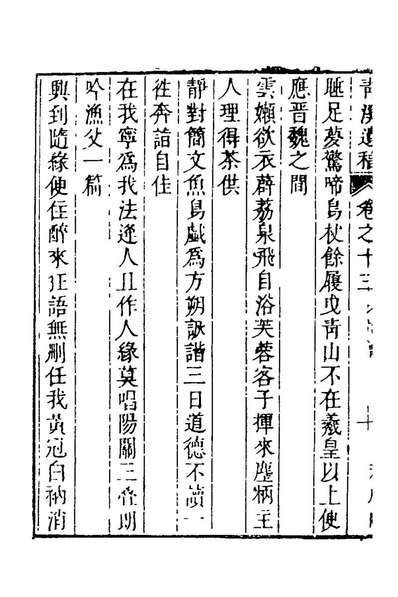 青溪遺稿 卷之十三 十
睡足夢驚啼鳥杖餘履曳青山不在羲皇以上便
應晉魏之間
雲嬾欲衣薜荔泉飛自浴芙蓉客子揮來麈柄主
人理得茶供
靜對簡文魚鳥戲為方朔詼諧三日道德不讀一
往奔詣自佳
在我寧為我法逢人且作人緣莫唱陽關三疊朗
吟漁父一篇
興到隨緣便住醉來狂語無刪任我黃冠白衲消